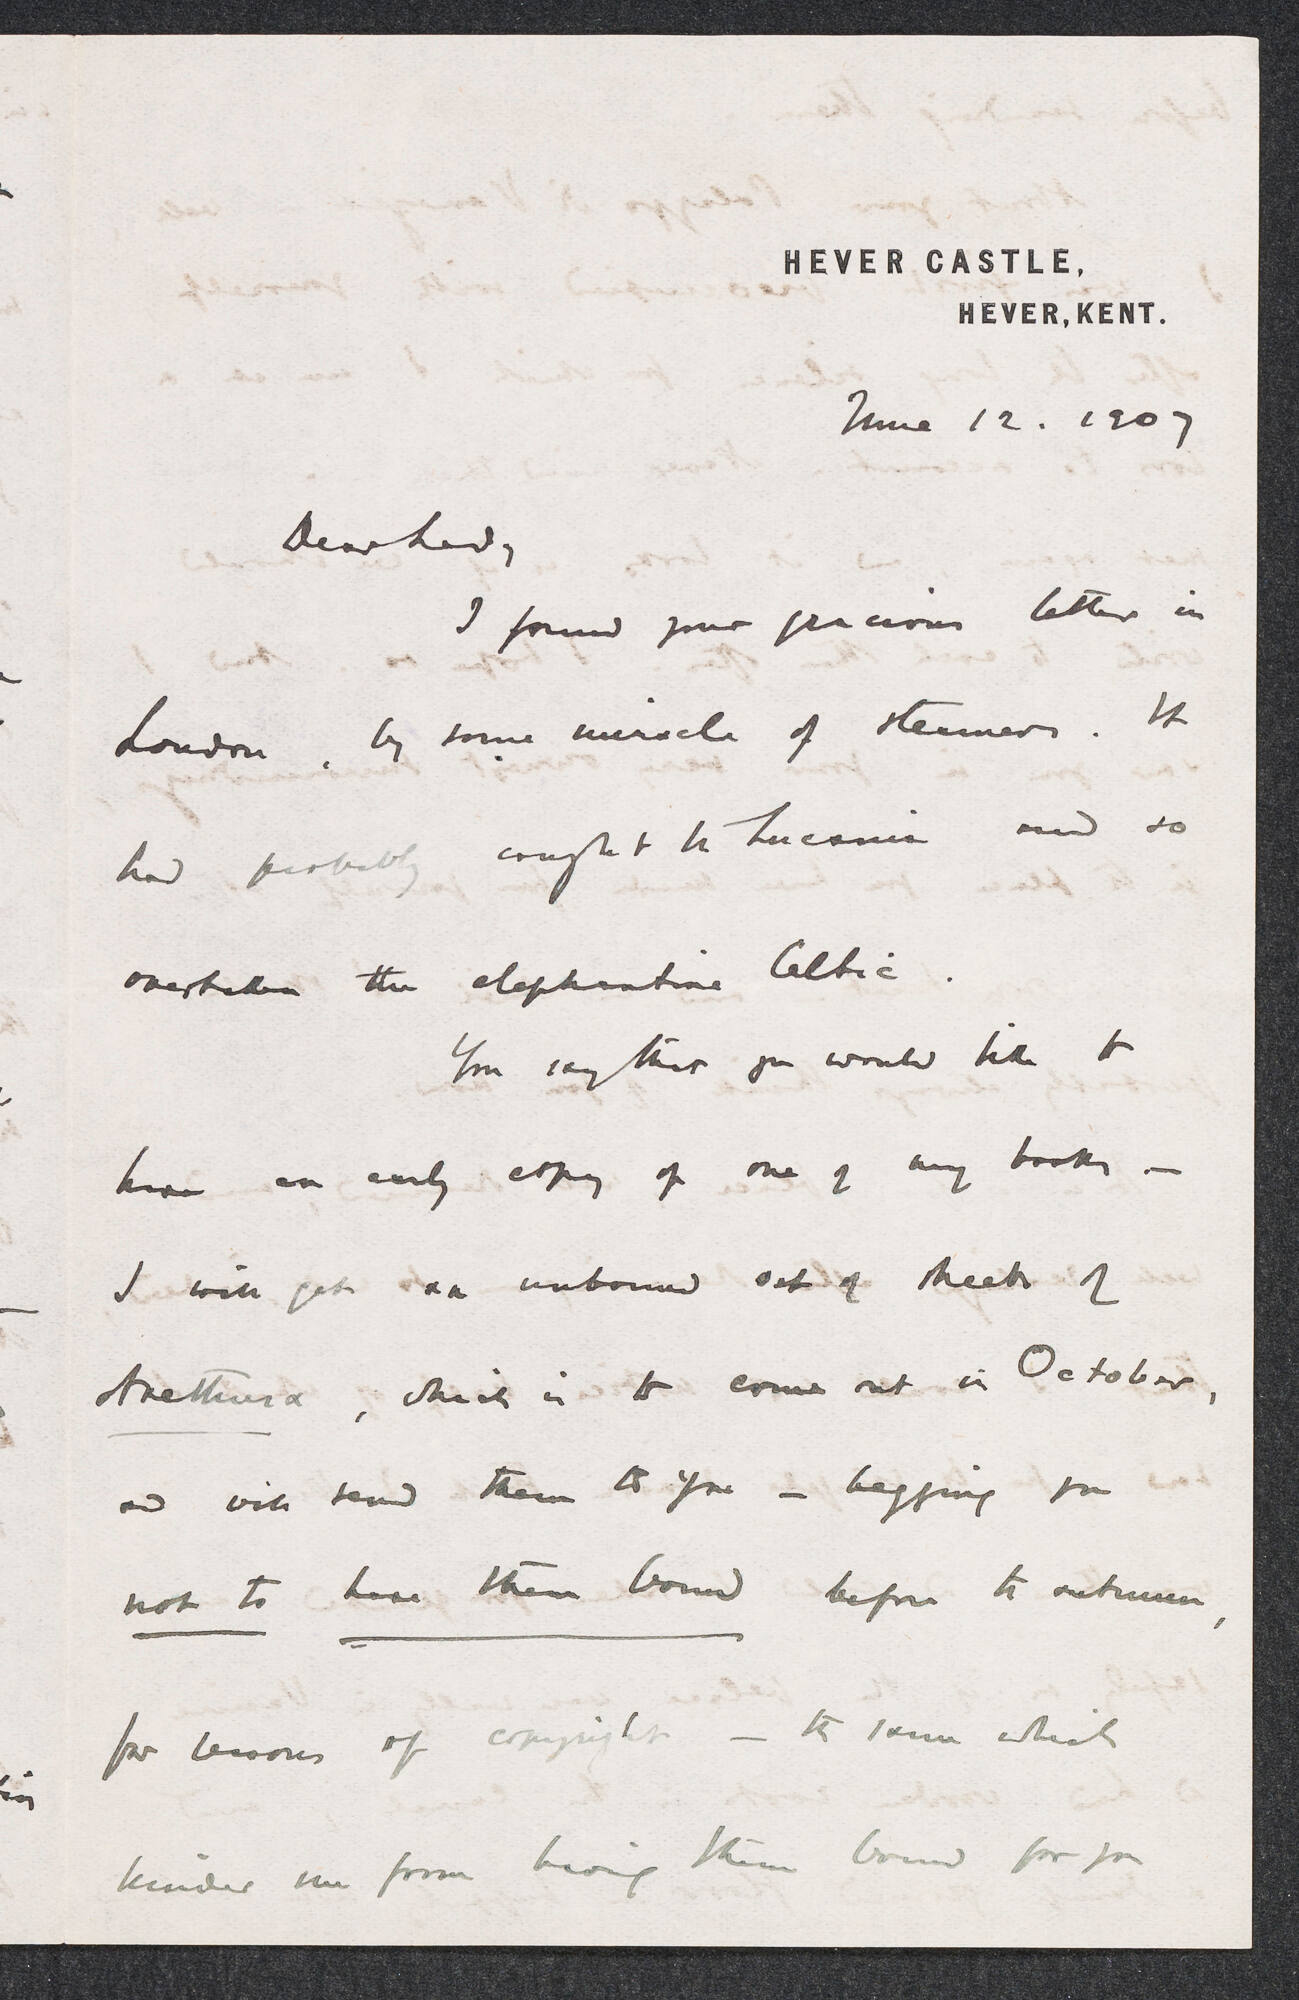 HEVER CASTLE,
HEVER, KENT.
June 12. 1907
Dear Lady,
I found your gracious letter in
London, by some miracle of steamers. It
had probably caught the Lucania and so
overtaken the elephantine Celtic.
You say that you would like to
have an early copy of one of my books —
I will get an unbound set of sheets of
Arethusa, which is to come out in October,
and will send them to you — begging you
not to have them bound before the autumn,
for reasons of copyright — the same which
hinder me from having them bound for you